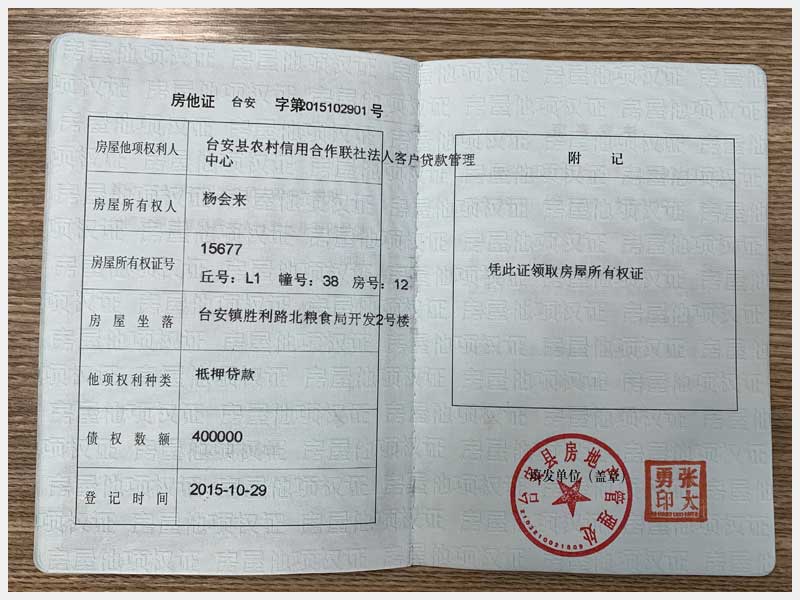 房他证 台安 字第2015102901号
房屋他项权利人 台安县农村信用合作联社法人客户贷款管理
中心
房屋所有权人 杨会来
房屋所有权证号 15677
丘号：L1 幢号：38 房号：12
房屋坐落 台安镇胜利路北粮食局开发2号楼
他项权利种类 抵押贷款
债权数额 400000
登记时间 2015-10-29
附 记
凭此证领取房屋所有权证
填发单位（盖章）
台安县房地产管理处
张大
勇印